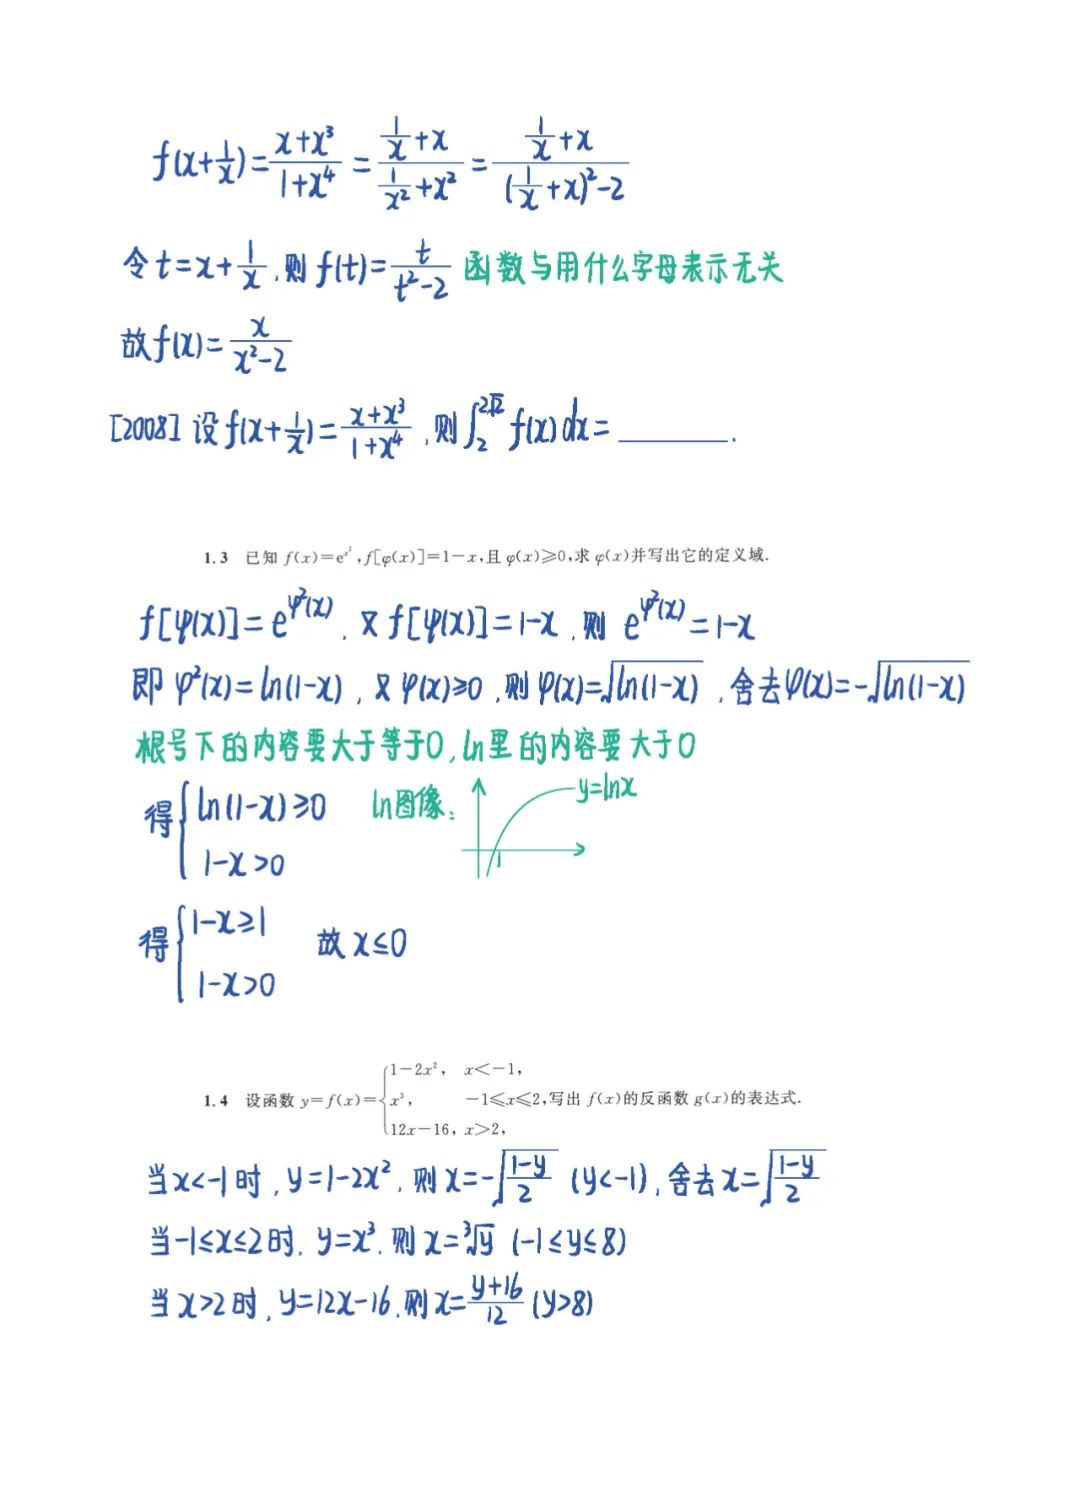 f(x+1/x)=(x+x³)/(1+x⁴)=(1/x+x)/(1/x²+x²)=(1/x+x)/((1/x+x)²-2)
令t=x+1/x,则f(t)=t/(t²-2) 函数与用什么字母表示无关
故f(x)=x/(x²-2)
[2008]设f(x+1/x)=(x+x³)/(1+x⁴),则∫₂^(2√2) f(x)dx=______.
1.3 已知 f(x)=e^(x²),f[φ(x)]=1-x,且 φ(x)≥0,求 φ(x)并写出它的定义域.
f[φ(x)]=e^(φ²(x)),又f[φ(x)]=1-x,则 e^(φ²(x))=1-x
即 φ²(x)=ln(1-x),又φ(x)≥0,则φ(x)=√(ln(1-x)),舍去φ(x)=-√(ln(1-x))
根号下的内容要大于等于0,ln里的内容要大于0
得{ln(1-x)≥0 ln图像: y=lnx
1-x>0 1
得{1-x≥1 故x≤0
1-x>0
1.4 设函数 y=f(x)={1-2x², x<-1,
x³, -1≤x≤2,写出 f(x)的反函数 g(x)的表达式.
12x-16, x>2,
当x<-1时,y=1-2x²,则x=-√((1-y)/2) (y<-1),舍去x=√((1-y)/2)
当-1≤x≤2时,y=x³,则x=³√y (-1≤y≤8)
当x>2时,y=12x-16,则x=(y+16)/12 (y>8)